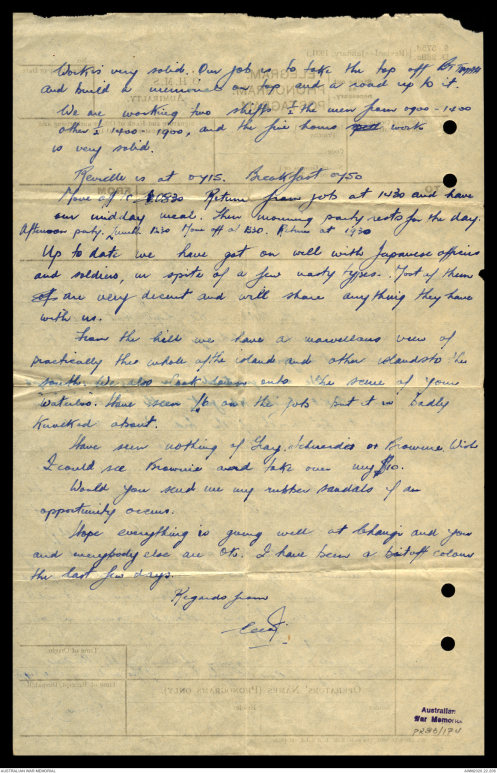 Work is very solid. Our job is to take the top off Bt Timah
and build a memorial on top and a road up to it.
We are working two shifts ½ the men from 0900 - 1400
other ½ 1400 - 1900, and the five hours work
is very solid.
Reveille is at 0715. Breakfast 0750
Move off 0830 Return from job at 1430 and have
our midday meal. Then morning party rests for the day.
Afternoon party. Lunch 1230 Move off at 1330. Return at 1930
Up to date we have got on well with Japanese officers
and soldiers, in spite of a few nasty types. Most of them
are very decent and will share anything they have
with us.
From the hill we have a marvellous view of
practically the whole of the island and other islands to the
south. We also look down onto the scene of your
"Waterloo". Have seen on the job but it is badly
knocked about.
Have seen nothing of Gay, Schneider or Brownie. Wish
I could see Brownie and take over my $10.
Would you send me my rubber sandals if an
opportunity occurs.
Hope everything is going well at Changi and you
and everybody else are OK. I have been a bit off colour
the last few days.
Regards from
OPERATORS' NAMES (PHONOGRAMS ONLY).
Australian
War Memorial
AUSTRALIAN WAR MEMORIAL